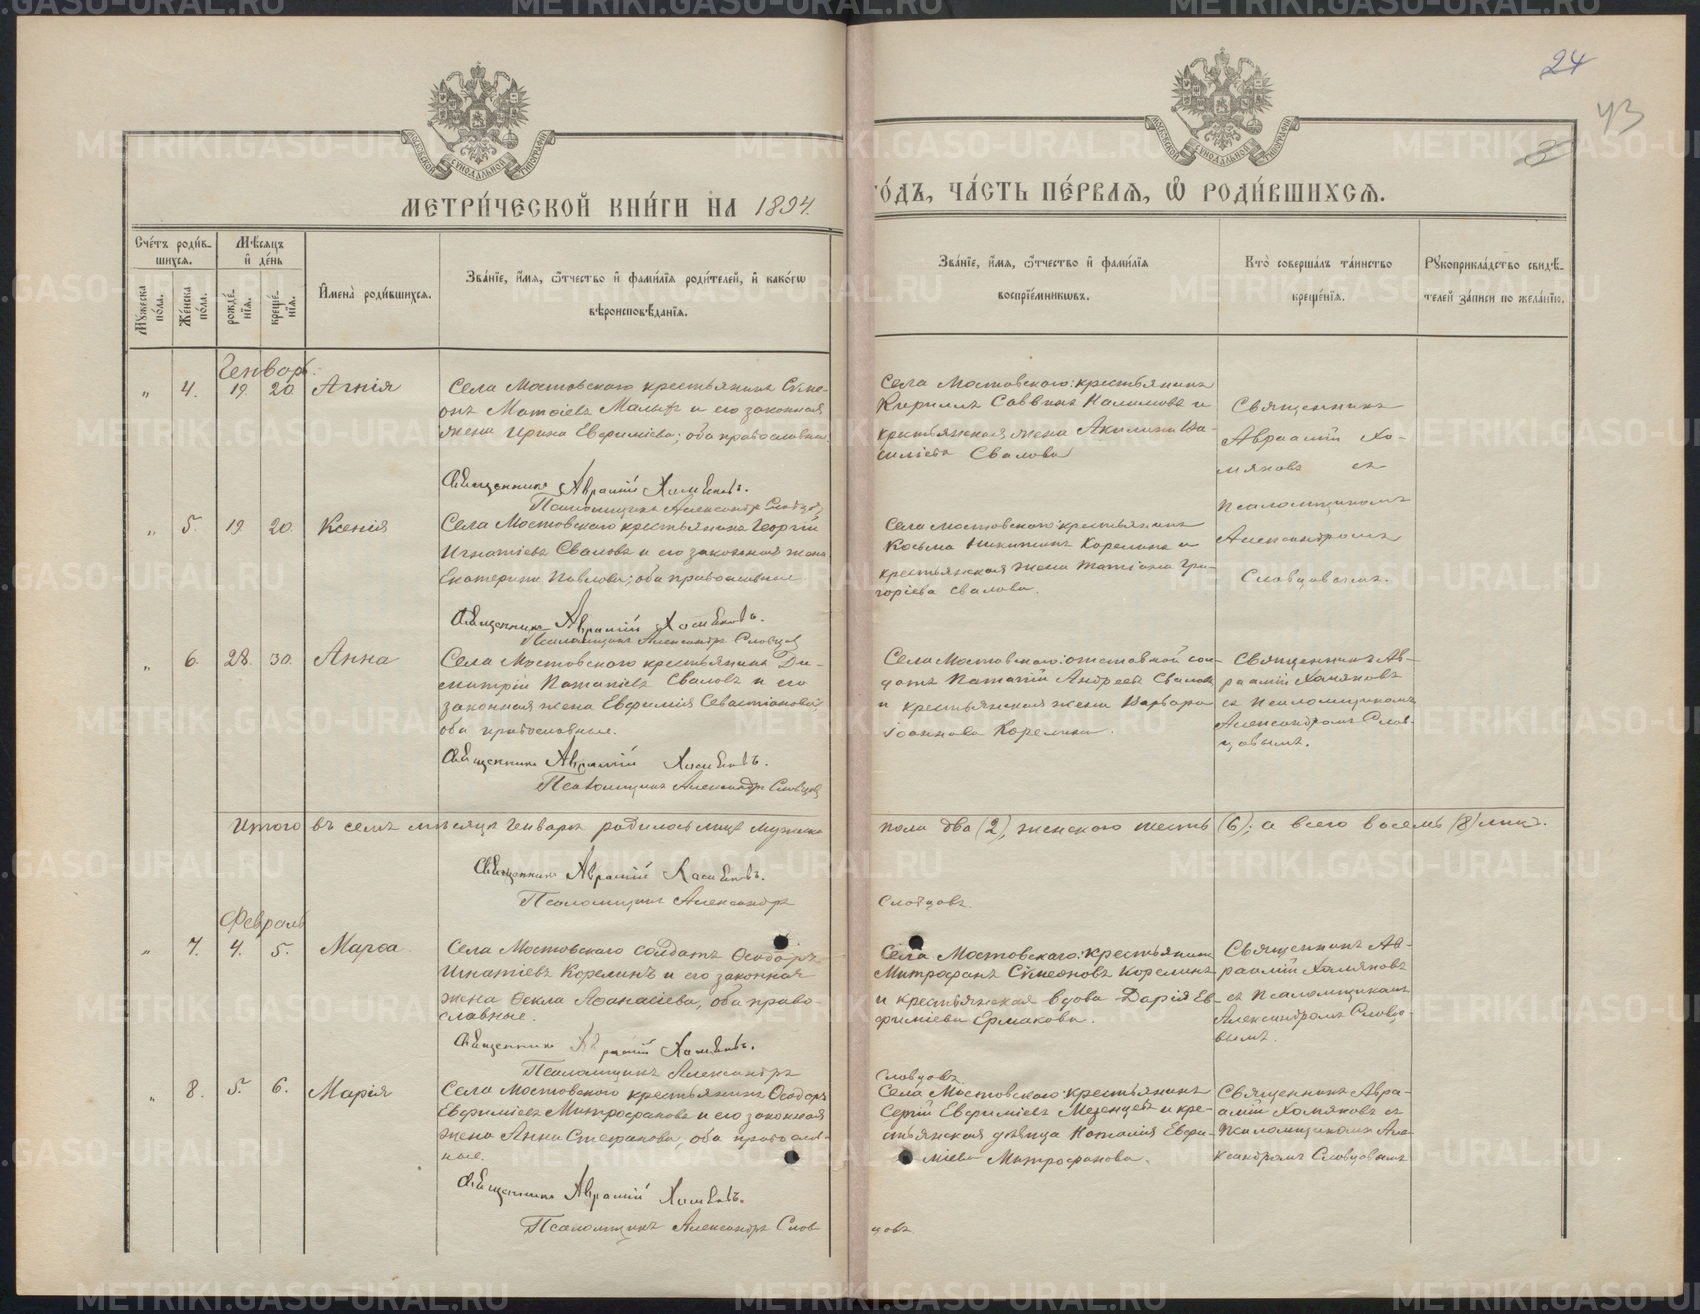 24
43
3
МОСКОВСКОЙ СѴНОДАЛЬНОЙ ТИПОГРАФІИ
МОСКОВСКОЙ СѴНОДАЛЬНОЙ ТИПОГРАФІИ
МЕТРИ́ЧЕСКОЙ КНИ́ГИ НА 1894.
ГО́ДЪ, ЧА́СТЬ ПЕ́РВАЯ, Ѡ РОДИ́ВШИХСЯ.
Сче́тъ роди́в-
шихся.
Мѣ́сяцъ
и҆ де́нь
Му́жеска по́ла.
Же́нска по́ла.
рожде́-нїя.
креще́-нїя.
И҆мена̀ роди́вшихся.
Зва́нїе, и҆́мя, ѻ҆́тчество и҆ фами́лїя роди́телей, и҆ како́гѡ
вѣроисповѣ́данїя.
Зва́нїе, и҆́мя, ѻ҆́тчество и҆ фами́лїя
воспрїе́мникѡвъ.
Кто̀ соверша́лъ та́инство
креще́нїя.
Рꙋкоприкла́дство свидѣ́-
телей за́писи по жела́нїю.
Генварь.
„ 4. 19. 20. Агнія
Села Мостовскаго крестьянинъ Сѵме-
онъ Матѳіевъ Малыхъ и его законная
жена Ирина Евфиміева; оба православные.
Священникъ Аврамій Хомяковъ.
Псаломщикъ Александръ Словцовъ
Села Мостовскаго: крестьянинъ
Кириллъ Саввинъ Налимовъ и
крестьянская жена Акилина Ва-
силіева Свалова
Священникъ
Авраамій Хо-
мяковъ съ
псаломщикомъ
Александромъ
Словцовымъ.
„ 5. 19 20. Ксенія
Села Мостовскаго крестьянинъ Георгій
Игнатіевъ Сваловъ и его законная жена
Екатерина Павлова; оба православные
Священникъ Аврамій Хомяковъ.
Псаломщикъ Александръ Словцовъ
Села Мостовскаго: крестьянинъ
Косьма Никитинъ Корелинъ и
крестьянская жена Татіана Гри-
горіева Свалова.
„ 6. 28. 30. Анна
Села Мостовскаго крестьянинъ Ди-
митрій Потапіевъ Сваловъ и его
законная жена Евфимія Севастіанова,
оба православные.
Священникъ Аврамій Хомяковъ.
Псаломщикъ Александръ Словцовъ
Села Мостовскаго: отставной сол-
датъ Потапій Андреевъ Сваловъ
и крестьянская жена Варвара
Іоаннова Корелина.
Священникъ Ав-
раамій Хомяковъ
съ псаломщикомъ
Александромъ Слов-
цовымъ.
Итого въ семъ мѣсяцѣ Генварѣ родилось лицъ мужска
пола два (2), женскаго шесть (6); а всего восемь (8) лицъ.
Священникъ Аврамій Хомяковъ.
Псаломщикъ Александръ
Словцовъ.
Февраль
„ 7. 4. 5. Марѳа
Села Мостовскаго солдатъ Ѳеодоръ
Игнатіевъ Корелинъ и его законная
жена Ѳекла Аѳанасіева, оба право-
славные.
Священникъ Аврамій Хомяковъ.
Псаломщикъ Александръ
Словцовъ.
Села Мостовскаго: крестьянинъ
Митрофанъ Сѵмеоновъ Корелинъ
и крестьянская вдова Дарія Ев-
фиміева Ермакова.
Священникъ Ав-
раамій Хомяковъ
съ псаломщикомъ
Александромъ Словцо-
вымъ.
„ 8. 5. 6. Марія
Села Мостовскаго крестьянинъ Ѳеодоръ
Евфиміевъ Митрофановъ и его законная
жена Анна Стефанова, оба православ-
ные.
Священникъ Аврамій Хомяковъ.
Псаломщикъ Александръ Слов-
цовъ
Села Мостовскаго: крестьянинъ
Сергій Евфиміевъ Мезенцевъ и кре-
стьянская дѣвица Наталія Евфи-
міева Митрофанова.
Священникъ Авра-
амій Хомяковъ съ
псаломщикомъ Але-
ксандромъ Словцовымъ
METRIKI.GASO-URAL.RU